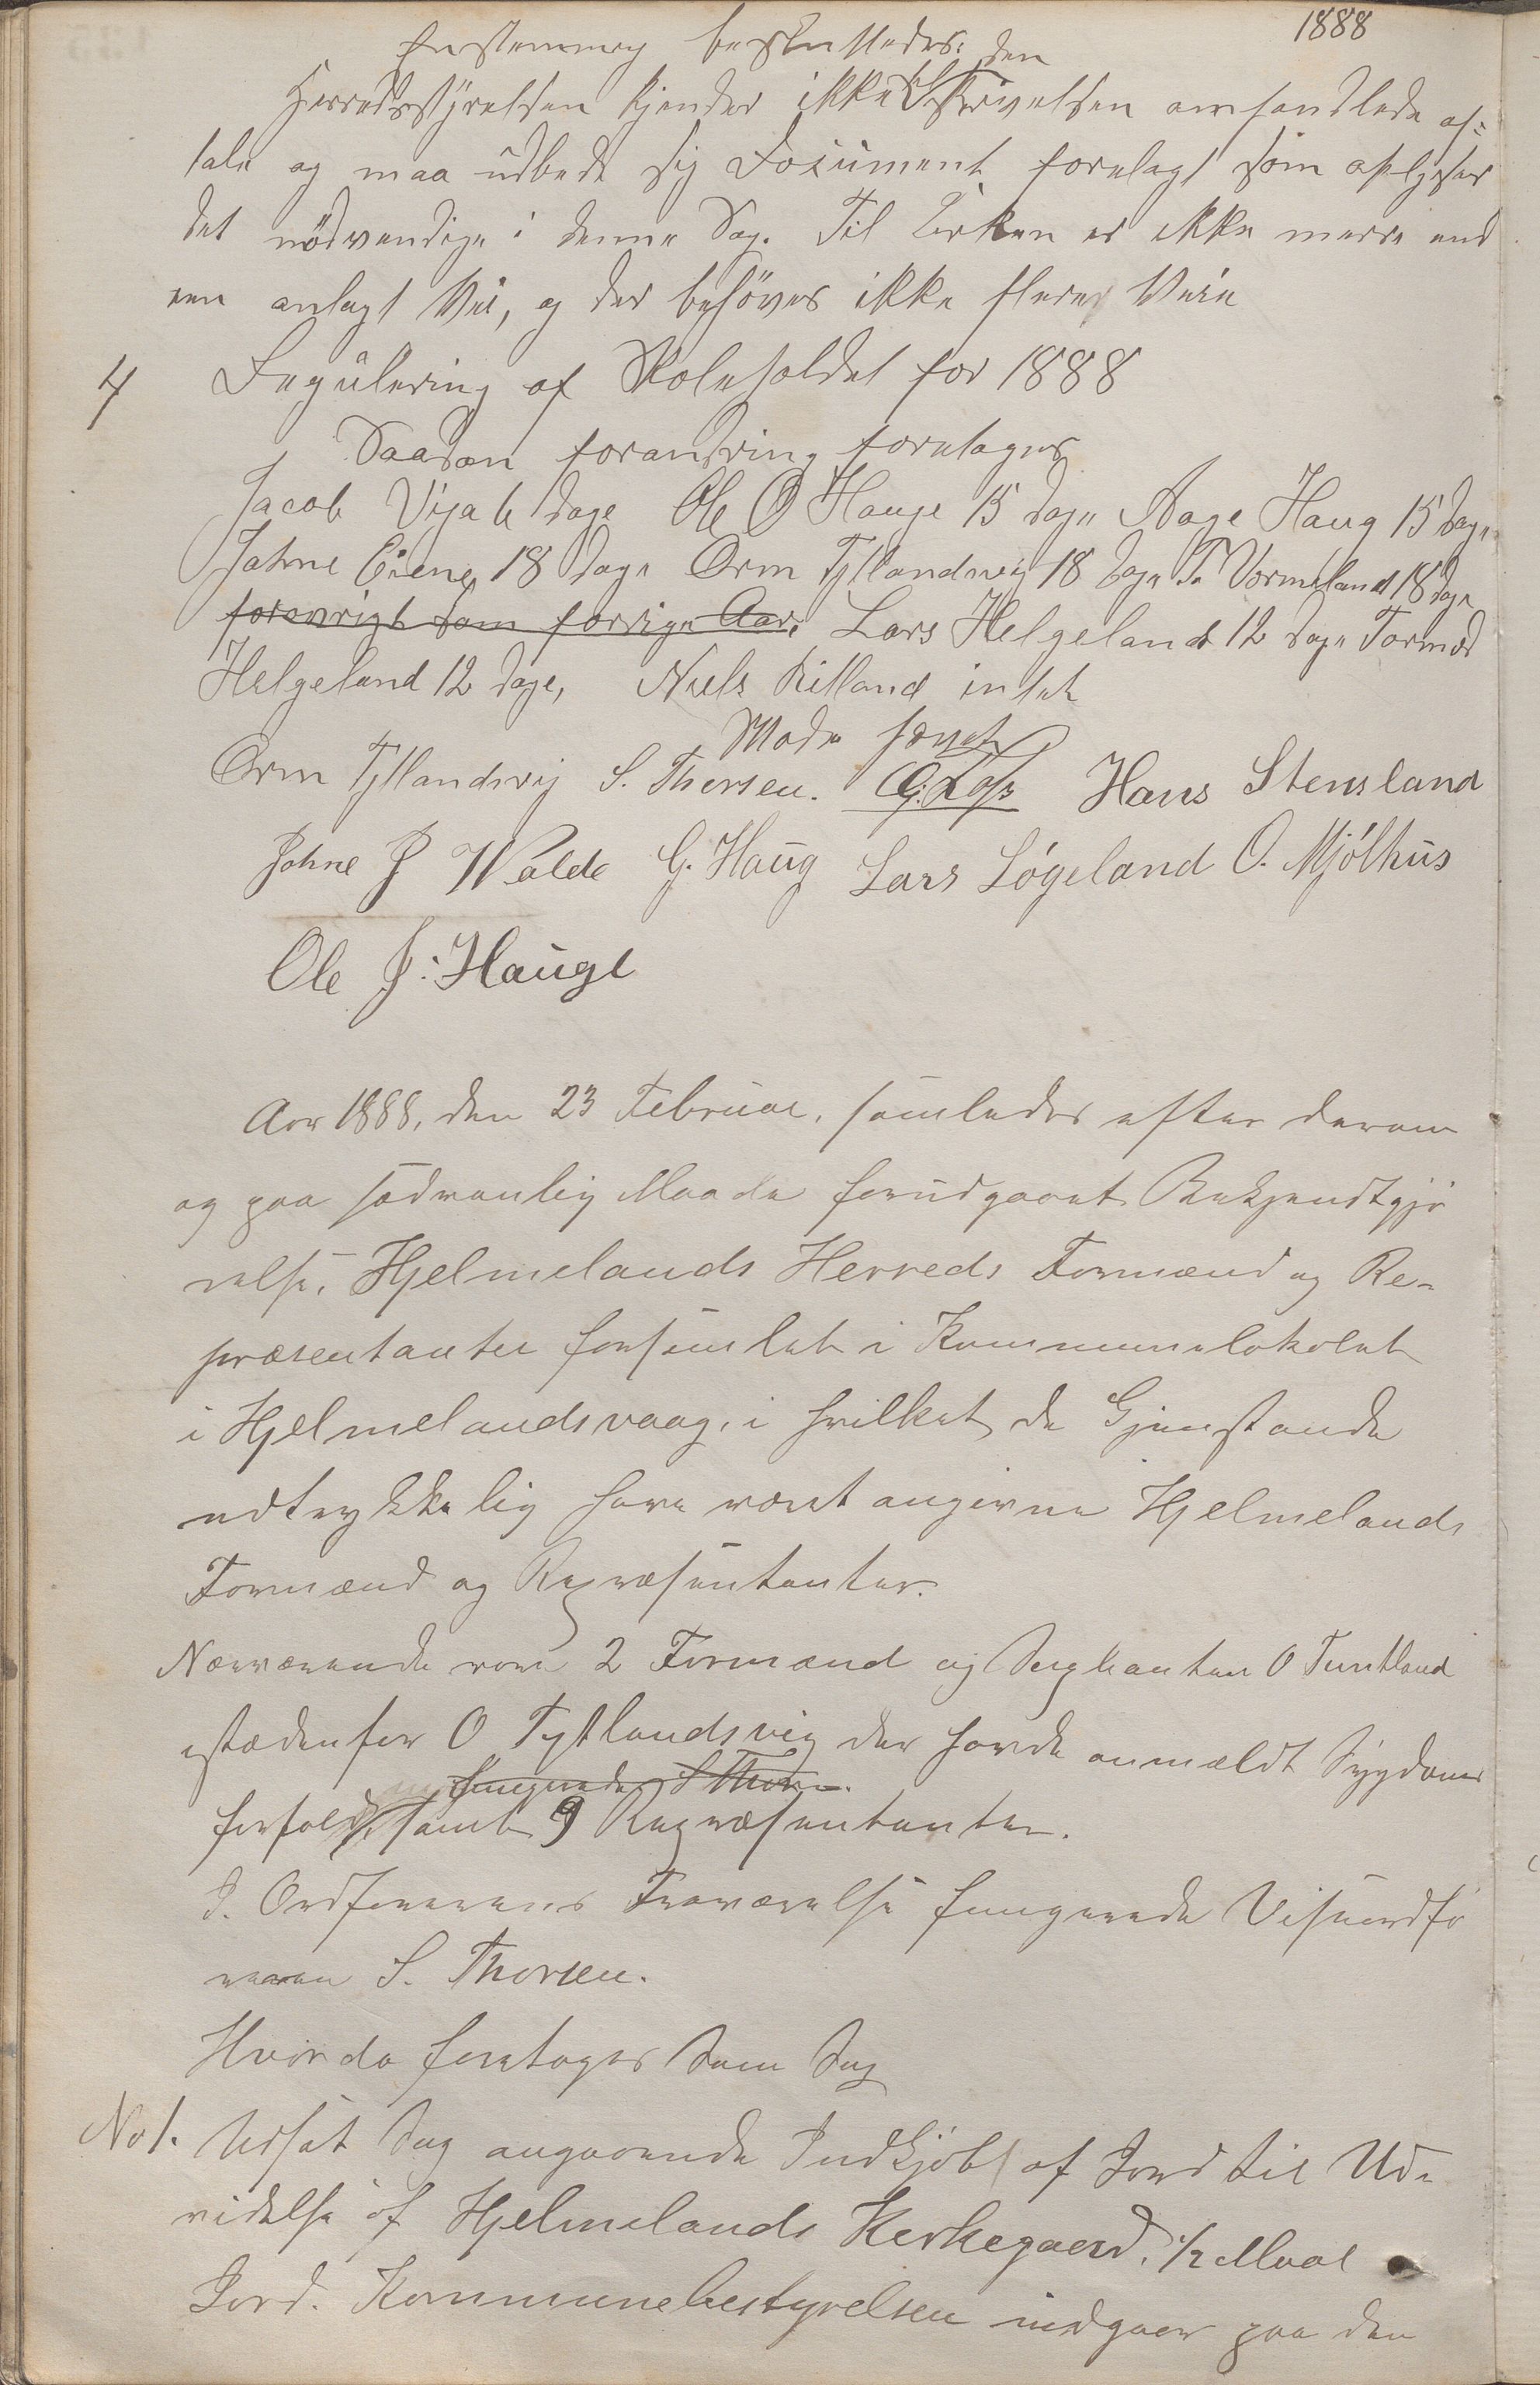 1888
Enstemmig besluttedes:
Herredsstyrelsen kjender ikke den i Skrivelsen omhandlede af-
tale og maa udbede sig Document forelagt som oplyser
det nödvendige i denne Sag. Til Kirken er ikke mere end
een anlagt Vei, og der behöves ikke flere Veie
4 Regulering af Skoleholdet for 1888
Saadan forandring foretages
Jacob Viga 6 dage Ole O Hauge 15 dage Aage Haug 15 dage
Johne Eiene 18 dage Orm Tytlandsvig 18 dage T. Vormeland 18 dage
forøvrigt som forrige Aar. Lars Helgeland 12 dage Tormod
Helgeland 12 dage, Niels Ritland intet
Mødet hævet
Orm Tytlandsvig S. Thorsen. Hans Stensland
Johne J Walde G. Haug Lars Lógeland O. Mjólhus
Ole J: Hauge
Aar 1888, den 23 Februar, samledes efter derom
og paa sedvanlig Maade forudgaaet Bekjendtgjö
relse, Hjelmelands Herreds Formænd og Re-
præsentanter forsamlet i Kommunelokalet
i Hjelmelandsvaag, i hvilket de Gjenstande
udtrykkelig have været angivne Hjelmelands
Formænd og Repræsentanter.
Nærværende vare 2 Formænd og Suplianten O Tuntland
istædenfor O Tytlandsvig der havde anmældt Sygdoms
fungerede S Thorsen.
forfald, samt 9 Repræsentanter.
I. Ordförerens Fraværelse fungerede Viseordfö
reren S. Thorsen.
Hvor da foretages Som Sag
No 1. Udsat Sag angaaende Indkjöb af Jord til Ud-
videlse af Hjelmelands Kirkegaard, 1/2 Maal
Jord. Kommunebestyrelsen indgaar paa den